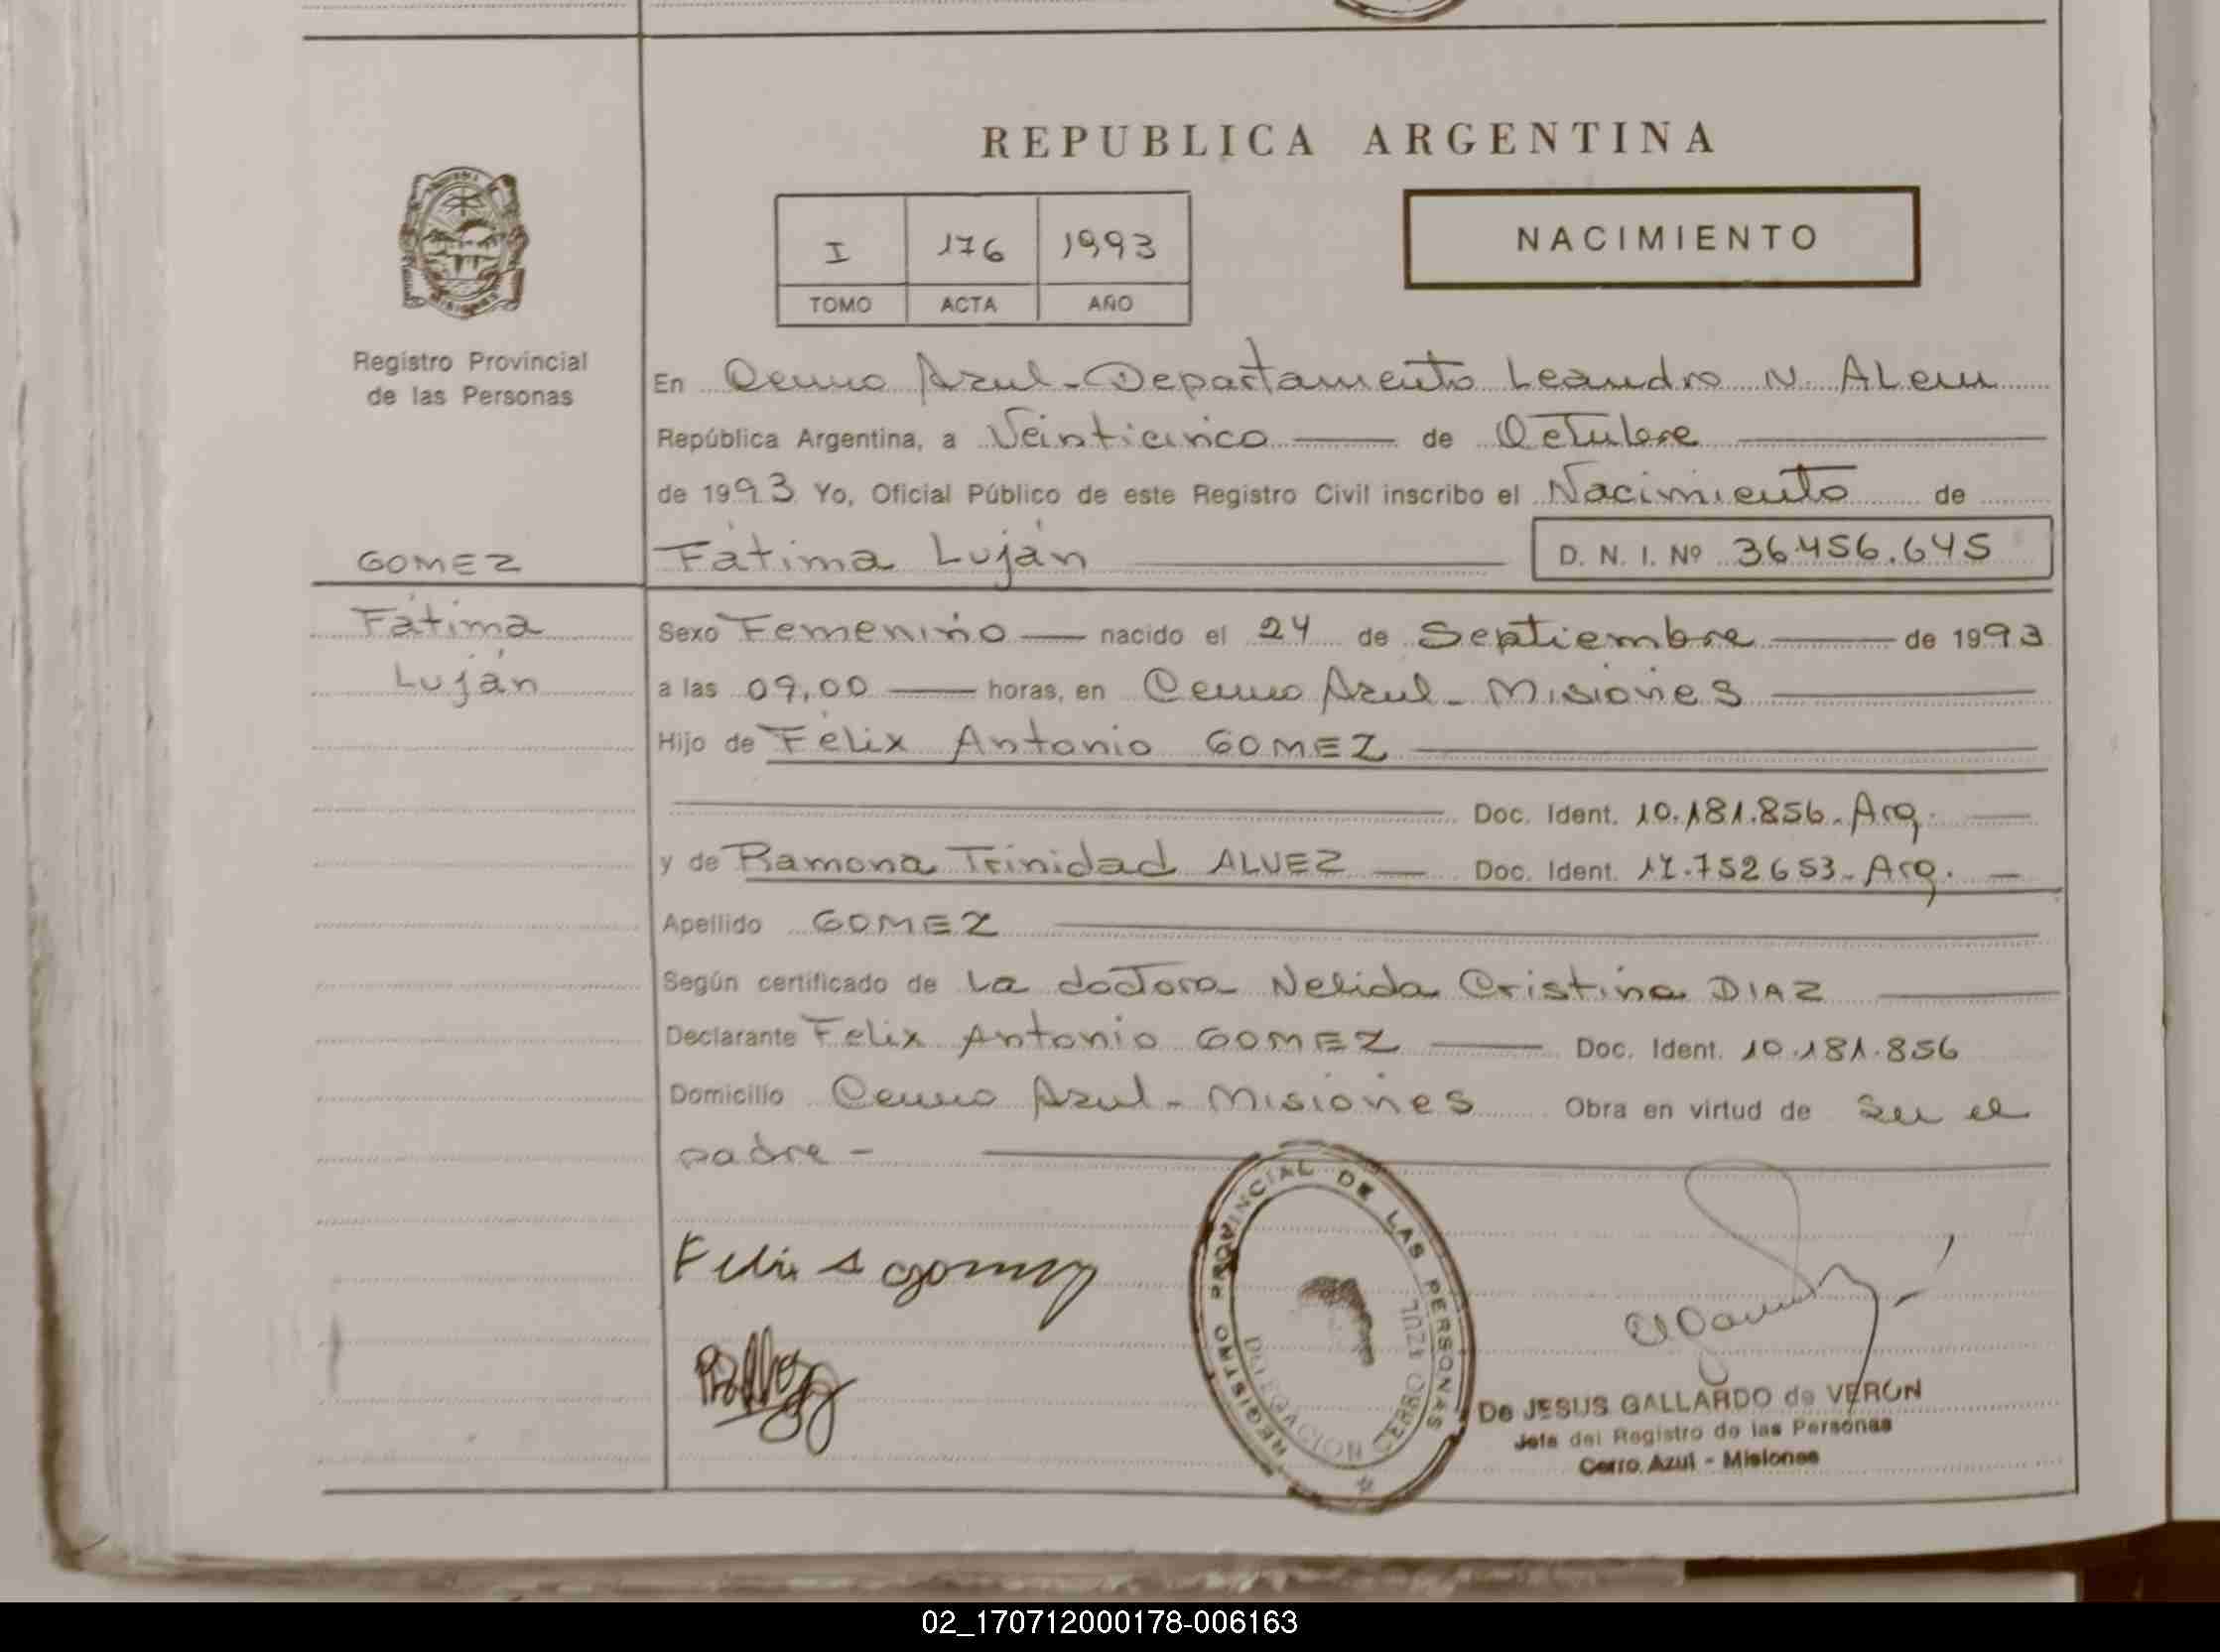 REPUBLICA ARGENTINA
I 176 1993
TOMO ACTA AÑO
NACIMIENTO
Registro Provincial
de las Personas
GOMEZ
Fátima
Luján
En Cerro Azul - Departamento Leandro N. ALem
República Argentina, a Veinticinco de Octubre
de 1993 Yo, Oficial Público de este Registro Civil inscribo el Nacimiento de
Fátima Luján D. N. I. Nº 36.456.645
Sexo Femenino nacido el 24 de Septiembre de 1993
a las 09,00 horas, en Cerro Azul - Misiones
Hijo de Félix Antonio GOMEZ
Doc. Ident. 10.181.856 - Arg.
y de Ramona Trinidad ALVEZ Doc. Ident. 17.752653 - Arg.
Apellido GOMEZ
Según certificado de La doctora Nelida Cristina DIAZ
Declarante Felix Antonio GOMEZ Doc. Ident. 10.181.856
Domicilio Cerro Azul - Misiones Obra en virtud de Ser el
padre -
Felix A gomez
REGISTRO PROVINCIAL DE LAS PERSONAS
DELEGACION CERRO AZUL
De JESUS GALLARDO de VERON
Jefa del Registro de las Personas
Cerro Azul - Misiones
02_170712000178-006163